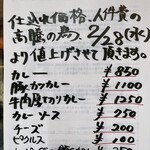 仕入れ価格、人件費の
高騰の為、2/28(水)
より値上げさせて頂きます。
カレー ¥850
豚カツカレー ¥1100
牛肉厚切りカレー ¥1250
カレーソース ¥250
チーズ ¥200
ピクルス ¥100